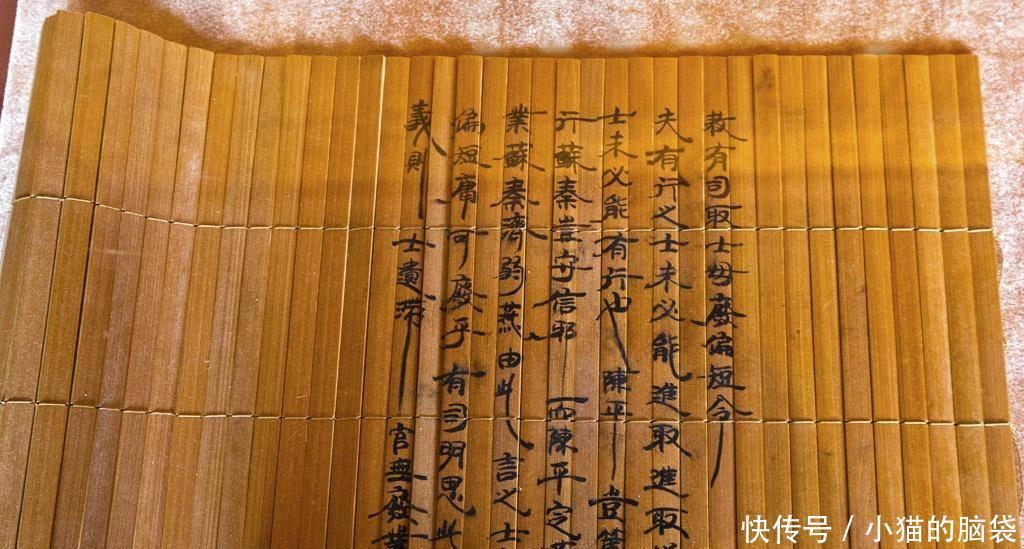 敕有司取士毋廢偏短令
夫有行之士未必能進取進取
士未必能有行也陳平豈篤
行蘇秦豈守信邪而陳平定
業蘇秦濟弱燕由此言之士
偏短庸可廢乎有司明思此
義則士遺滯官無廢業
快传号 / 小猫的脑袋